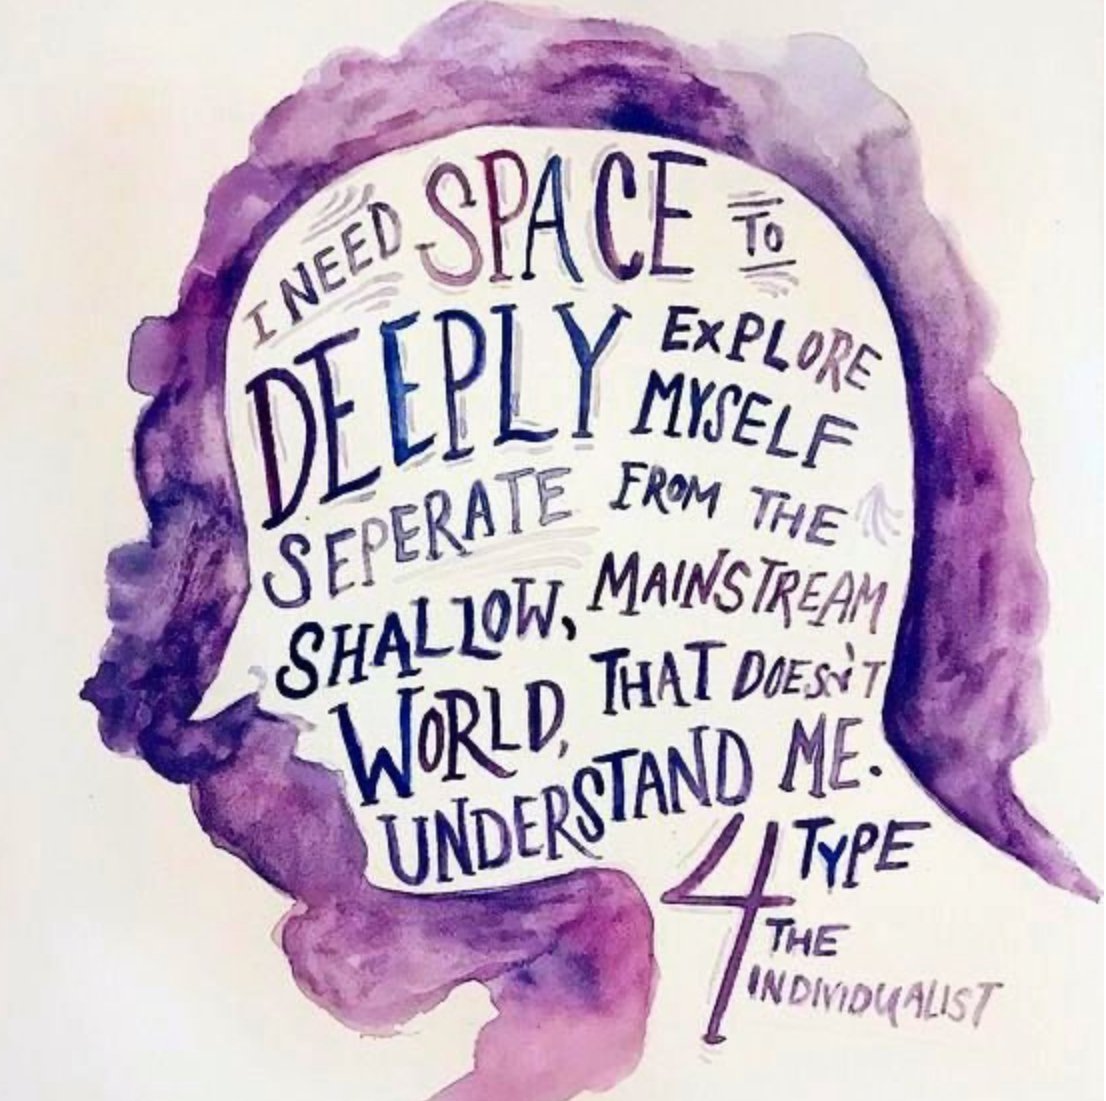 I NEED SPACE TO
DEEPLY EXPLORE
MYSELF
SEPERATE FROM THE
SHALLOW, MAINSTREAM
WORLD, THAT DOESN'T
UNDERSTAND ME.
4 TYPE
THE
INDIVIDUALIST